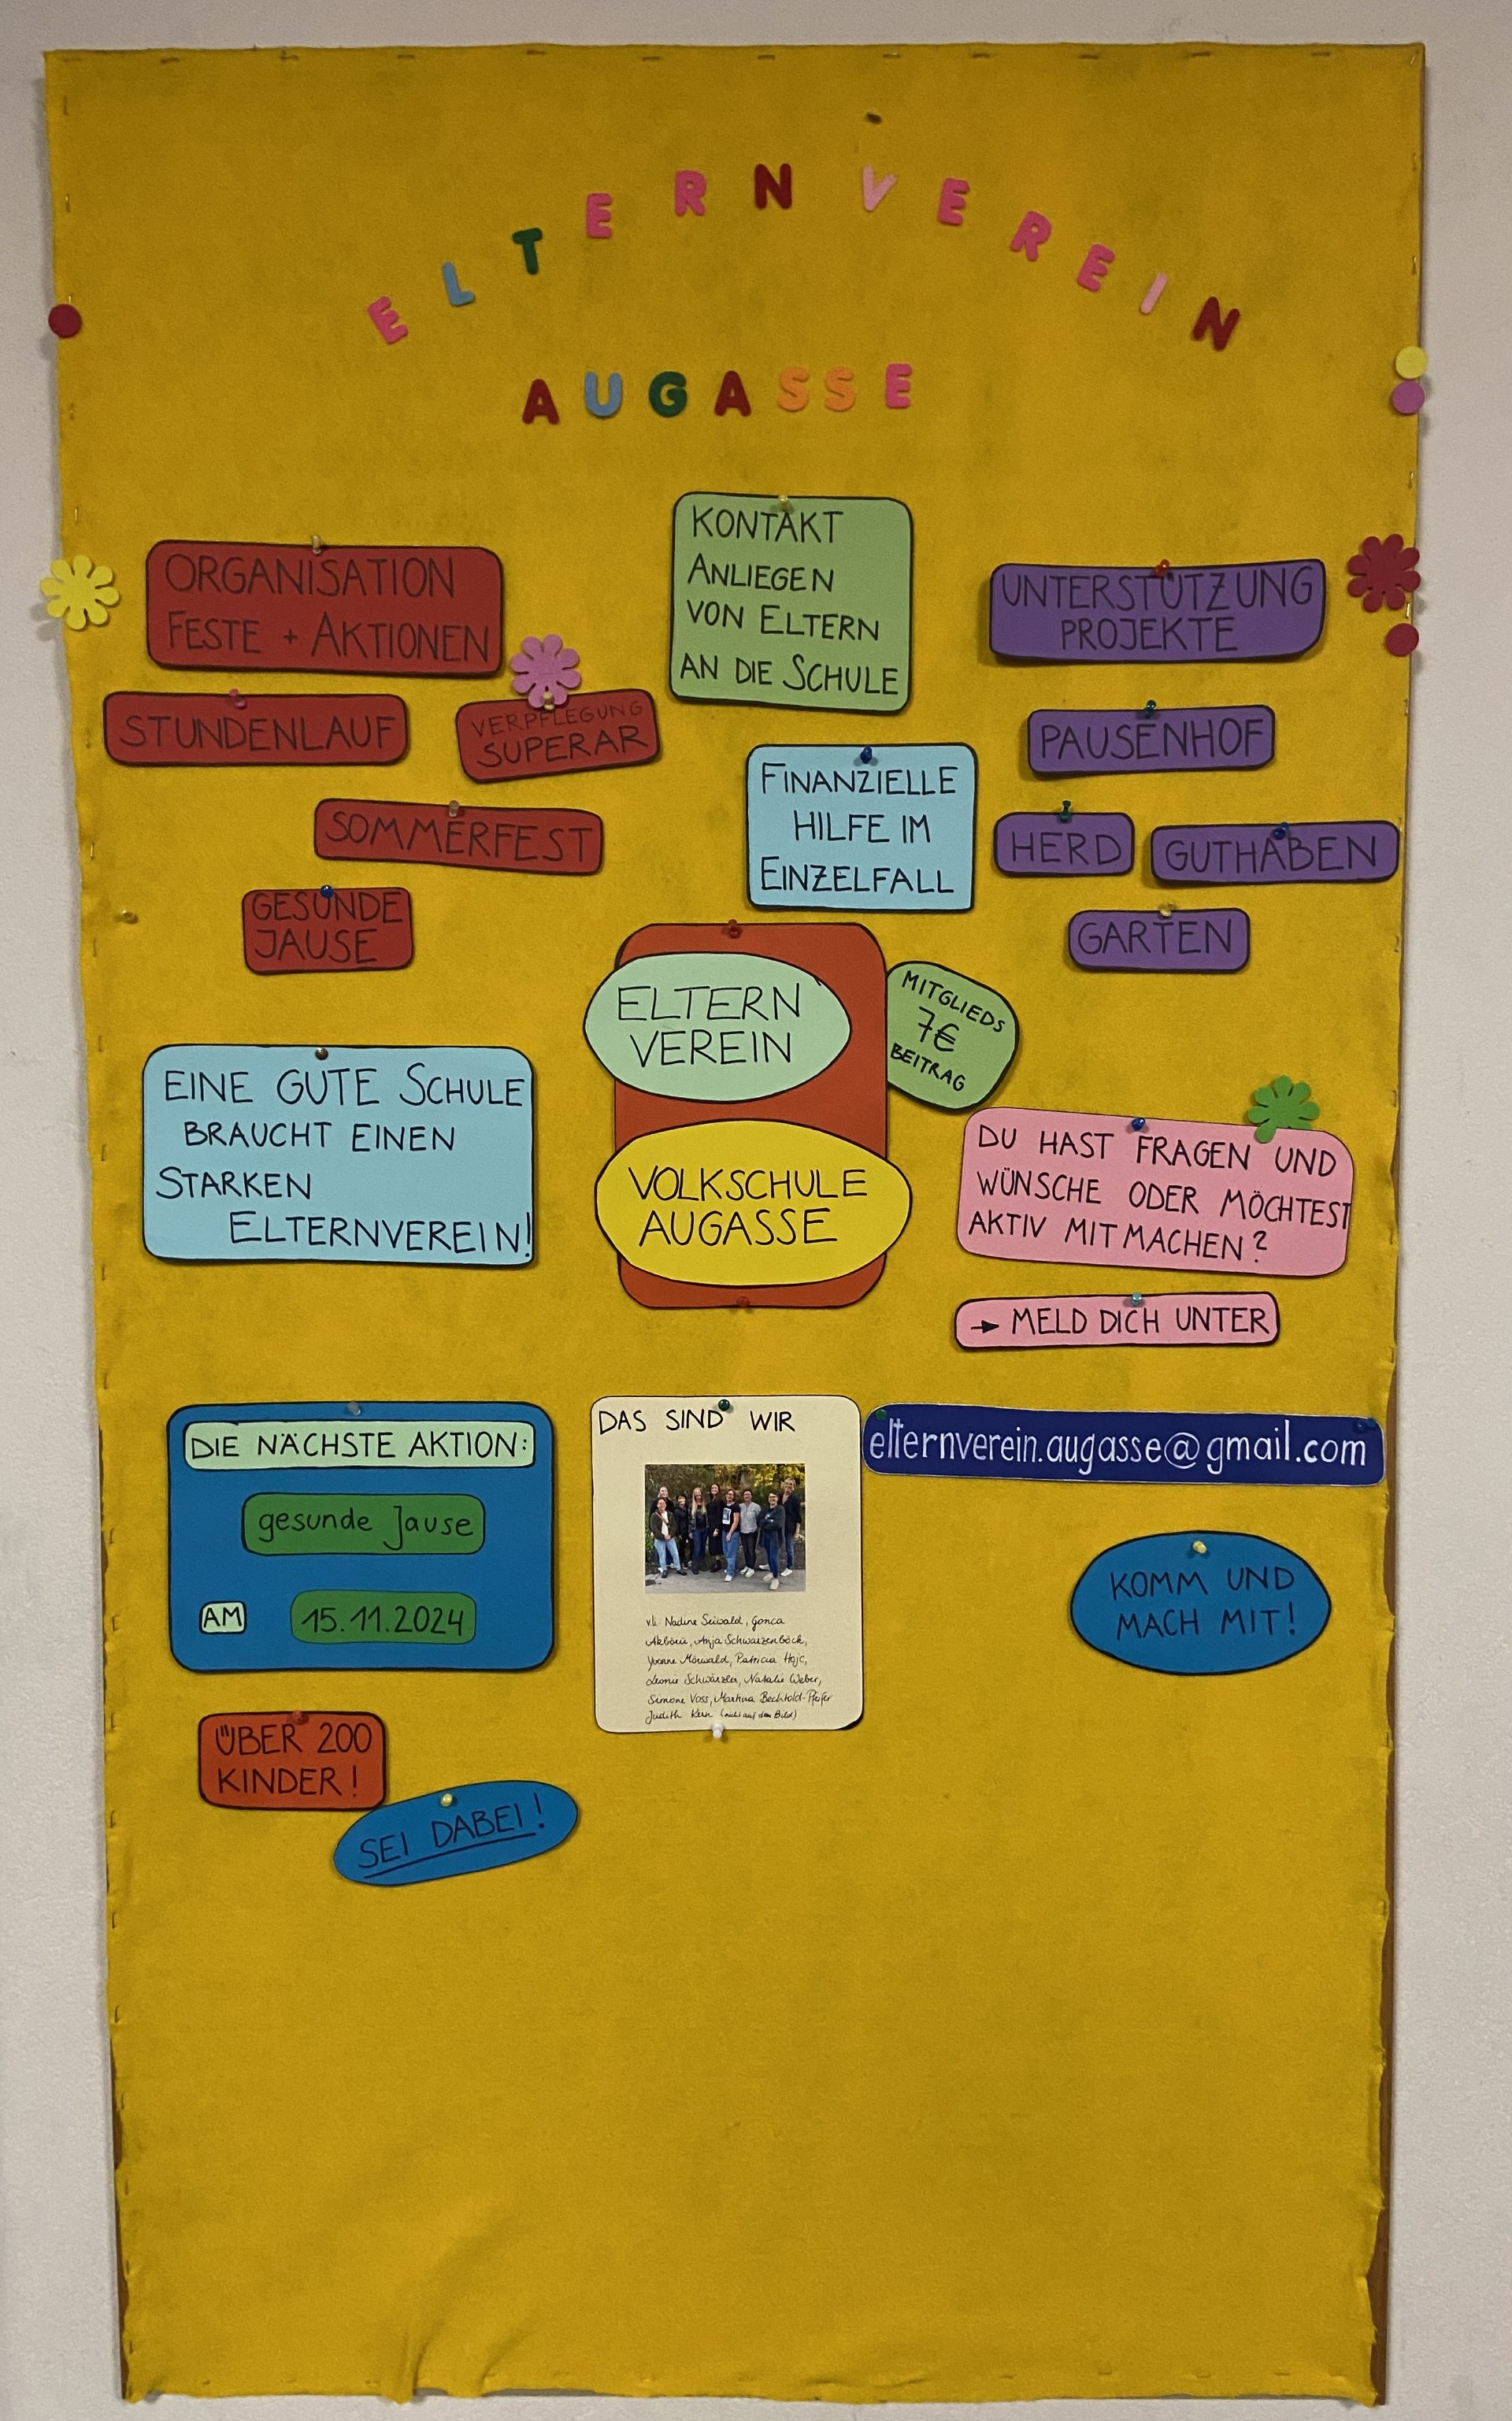 ELTERNVEREIN
AUGASSE
ORGANISATION
FESTE + AKTIONEN
STUNDENLAUF
VERPFLEGUNG
SUPERAR
SOMMERFEST
GESUNDE
JAUSE
KONTAKT
ANLIEGEN
VON ELTERN
AN DIE SCHULE
FINANZIELLE
HILFE IM
EINZELFALL
UNTERSTÜTZUNG
PROJEKTE
PAUSENHOF
HERD
GUTHABEN
GARTEN
ELTERN
VEREIN
MITGLIEDS
7€
BEITRAG
VOLKSCHULE
AUGASSE
EINE GUTE SCHULE
BRAUCHT EINEN
STARKEN
ELTERNVEREIN!
DU HAST FRAGEN UND
WÜNSCHE ODER MÖCHTEST
AKTIV MITMACHEN?
→ MELD DICH UNTER
elternverein.augasse@gmail.com
DIE NÄCHSTE AKTION:
gesunde Jause
AM 15.11.2024
DAS SIND WIR
Nadine Seiwald, Gonca
Anja Schwarzenböck,
Yvonne Mörwald, Patricia Hajc,
Leonie Schwärzler, Natalie Weber,
Simone Voss, Martina Bechtold-Pfeifer
Judith Kern (nicht auf dem Bild)
KOMM UND
MACH MIT!
ÜBER 200
KINDER!
SEI DABEI!